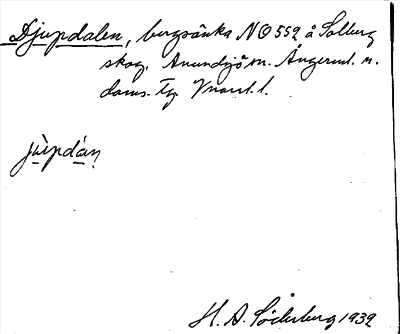 Djupdalen, bergsänka NO 552 å Solberg
skog, Anundsjö sn. Ångerml. n.
doms. Tg.
jùpdán
H. A. Söderberg 1932